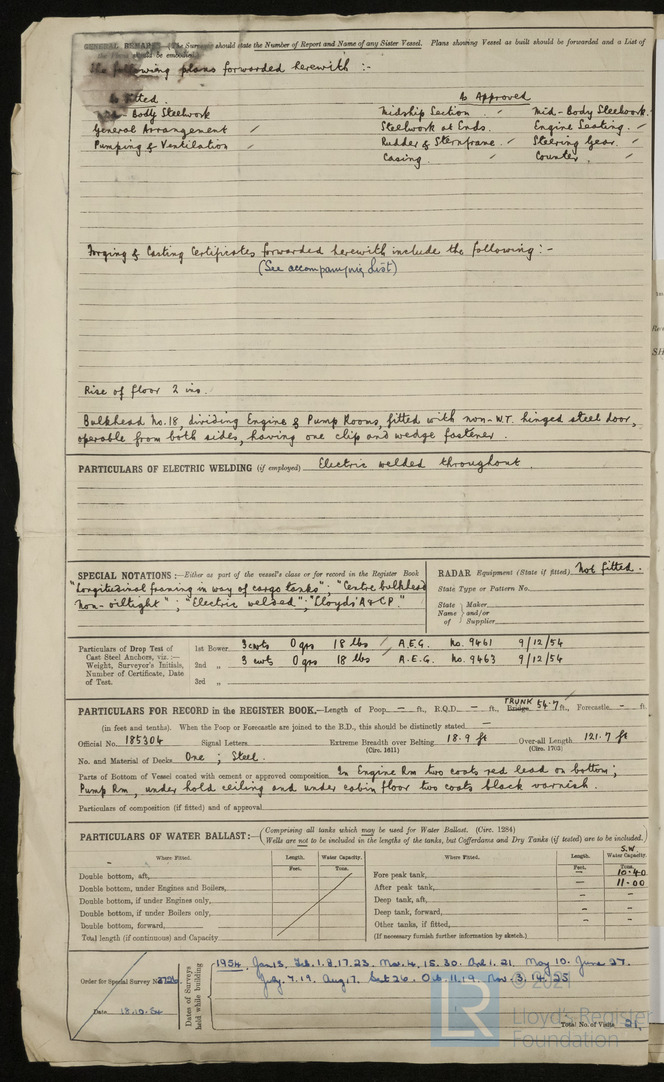 GENERAL REMARKS—(The Surveyor should state the Number of Report and Name of any Sister Vessel. Plans showing Vessel as built should be forwarded and a List of
the Plans should be embodied.)
The following plans forwarded herewith :-
As Fitted. As Approved
Mid-Body Steelwork Midship Section ✓ Mid-Body Steelwork.
General Arrangement ✓ Steelwork at Ends. Engine Seating. ✓
Pumping & Ventilation ✓ Rudder & Sternframe. ✓ Steering Gear. ✓
Casing. ✓ Counter. ✓
Forging & Casting Certificates forwarded herewith include the following :-
(See accompanying List)
Rise of floor 2 ins.
Bulkhead No.18, dividing Engine & Pump Rooms, fitted with non-W.T. hinged steel door,
operable from both sides, having one clip and wedge fastener.
PARTICULARS OF ELECTRIC WELDING (if employed) Electric welded throughout.
SPECIAL NOTATIONS :—Either as part of the vessel's class or for record in the Register Book
"Longitudinal framing in way of cargo tanks"; "Centre bulkhead
non-oiltight"; "Electric welded"; "Lloyds A & C.P."
RADAR Equipment (State if fitted) Not fitted.
State Type or Pattern No.
State Name of { Maker and/or Supplier
Particulars of Drop Test of Cast Steel Anchors, viz. :— Weight, Surveyor's Initials, Number of Certificate, Date of Test.
1st Bower 3 cwts 0 qrs 18 lbs ✓ A.E.G. No. 9461 9/12/54
2nd „ 3 cwts 0 qrs 18 lbs A.E.G. No. 9463 9/12/54
3rd „
PARTICULARS FOR RECORD in the REGISTER BOOK.—Length of Poop — ft., R.Q.D. — ft., Bridge TRUNK 54.7 ft., Forecastle — ft.
(in feet and tenths). When the Poop or Forecastle are joined to the B.D., this should be distinctly stated —
Official No. 185304 Signal Letters Extreme Breadth over Belting 18.9 ft Over-all Length 121.7 ft
(Circ. 1611) (Circ. 1703)
No. and Material of Decks One ; Steel.
Parts of Bottom of Vessel coated with cement or approved composition In Engine Rm two coats red lead on bottom ;
Pump Rm, under hold ceiling and under cabin floor two coats black varnish.
Particulars of composition (if fitted) and of approval
PARTICULARS OF WATER BALLAST:—(Comprising all tanks which may be used for Water Ballast. (Circ. 1284)
Wells are not to be included in the lengths of the tanks, but Cofferdams and Dry Tanks (if tested) are to be included.)
Where Fitted. Length. Water Capacity. Where Fitted. Length. S.W. Water Capacity.
Feet. Tons. Feet. Tons.
Double bottom, aft, Fore peak tank, — 10.40
Double bottom, under Engines and Boilers, After peak tank, — 11.00
Double bottom, if under Engines only, Deep tank, aft, — —
Double bottom, if under Boilers only, Deep tank, forward, — —
Double bottom, forward, Other tanks, if fitted, — —
Total length (if continuous) and Capacity (If necessary furnish further information by sketch.)
Order for Special Survey No.
Date 18.10.54
Dates of Surveys held while building
1954. Jan 13. Feb. 1. 8. 17. 23. Mar. 4. 15. 30. Apl 1. 21. May 10. June 27.
July. 7. 19. Aug 17. Sept 26. Oct. 11. 19. Nov. 3. 14. 25
Total No. of Visits 21.
© 2021
LR
Lloyd's Register
Foundation